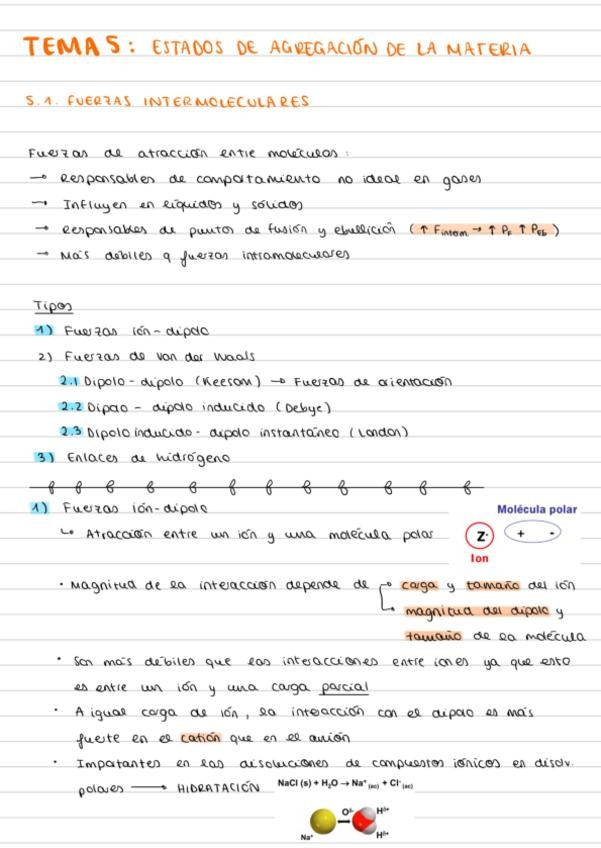 TEMA 5: ESTADOS DE AGREGACIÓN DE LA MATERIA
5.1. FUERZAS INTERMOLECULARES
Fuerzas de atracción entre moléculas:
→ Responsables de comportamiento no ideal en gases
→ Influyen en líquidos y sólidos
→ Responsables de puntos de fusión y ebullición (↑ Fintem → ↑ PF ↑ PEb)
→ Más débiles q fuerzas intramoleculares
Tipos
1) Fuerzas ión-dipolo
2) Fuerzas de Van der Waals
2.1 Dipolo-dipolo (Keesom) → Fuerzas de orientación
2.2 Dipolo - dipolo inducido (Debye)
2.3 Dipolo inducido - dipolo instantáneo (London)
3) Enlaces de hidrógeno
1) Fuerzas ión-dipolo
↳ Atracción entre un ión y una molécula polar
Molécula polar
Z- + -
Ion
· Magnitud de la interacción depende de → carga y tamaño del ión
→ magnitud del dipolo y
tamaño de la molécula
· Son más débiles que las interacciones entre iones ya que esto
es entre un ión y una carga parcial
· A igual carga de ión, la interacción con el dipolo es más
fuerte en el catión que en el anión
· Importantes en las disoluciones de compuestos iónicos en disolv.
polares → HIDRATACIÓN NaCl (s) + H2O → Na+ (ac) + Cl- (ac)
Oδ- Hδ+
Na+ Hδ+